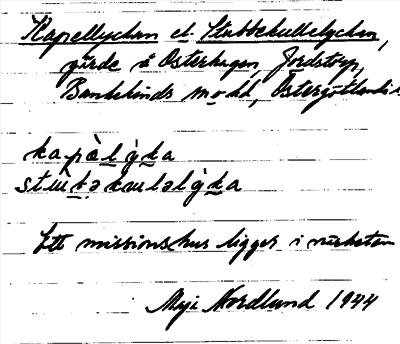 Kapellyckan el. Stubbekullelyckan,
gärde å Österhagen, Jordstorp,
Bankekinds sn o hd, Östergötlands l.
kapàlỳka
Ett missionshus ligger i närheten
Maji Nordlund 1944